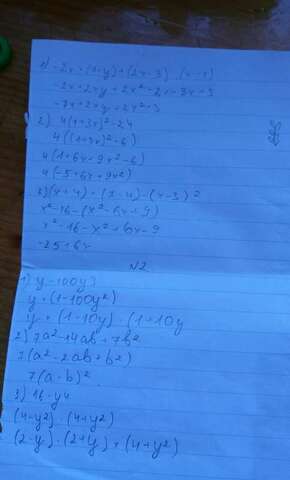 1) -2x · (1-y) + (2x-3) · (x+1)
-2x+2xy + 2x²+2x-3x-3
-3x+2xy+2x²-3
2) 4(1+3x)²-24
4((1+3x)²-6)
4(1+6x+9x²-6)
4(-5+6x+9x²)
3)(x+4)·(x-4)-(x-3)²
x²-16-(x²-6x+9)
x²-16-x²+6x-9
-25+6x
N2
1) y-100y³
y·(1-100y²)
y·(1-10y)·(1+10y
2) 7a²-14ab+7b²
7(a²-2ab+b²)
7(a-b)²
3) 16-y⁴
(4-y²)·(4+y²)
(2-y)·(2+y)·(4+y²)